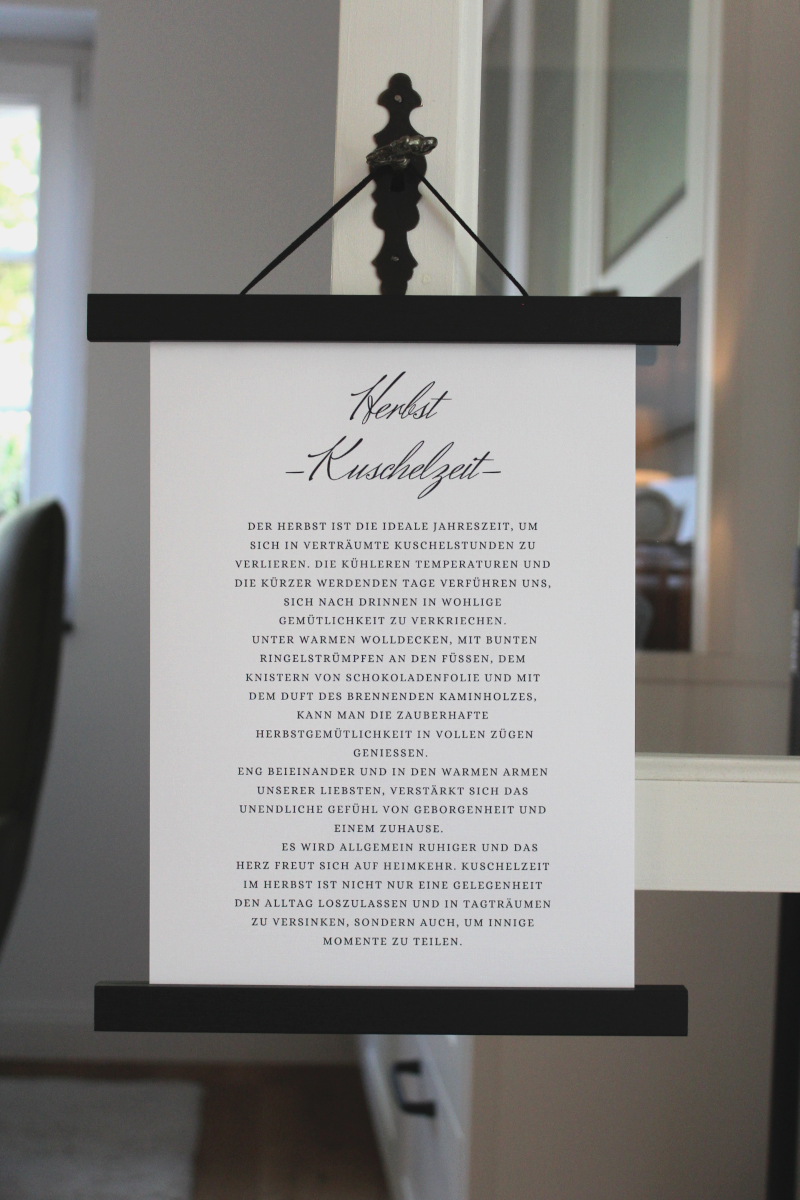 Herbst
–Kuschelzeit–
DER HERBST IST DIE IDEALE JAHRESZEIT, UM
SICH IN VERTRÄUMTE KUSCHELSTUNDEN ZU
VERLIEREN. DIE KÜHLEREN TEMPERATUREN UND
DIE KÜRZER WERDENDEN TAGE VERFÜHREN UNS,
SICH NACH DRINNEN IN WOHLIGE
GEMÜTLICHKEIT ZU VERKRIECHEN.
UNTER WARMEN WOLLDECKEN, MIT BUNTEN
RINGELSTRÜMPFEN AN DEN FÜSSEN, DEM
KNISTERN VON SCHOKOLADENFOLIE UND MIT
DEM DUFT DES BRENNENDEN KAMINHOLZES,
KANN MAN DIE ZAUBERHAFTE
HERBSTGEMÜTLICHKEIT IN VOLLEN ZÜGEN
GENIESSEN.
ENG BEIEINANDER UND IN DEN WARMEN ARMEN
UNSERER LIEBSTEN, VERSTÄRKT SICH DAS
UNENDLICHE GEFÜHL VON GEBORGENHEIT UND
EINEM ZUHAUSE.
ES WIRD ALLGEMEIN RUHIGER UND DAS
HERZ FREUT SICH AUF HEIMKEHR. KUSCHELZEIT
IM HERBST IST NICHT NUR EINE GELEGENHEIT
DEN ALLTAG LOSZULASSEN UND IN TAGTRÄUMEN
ZU VERSINKEN, SONDERN AUCH, UM INNIGE
MOMENTE ZU TEILEN.